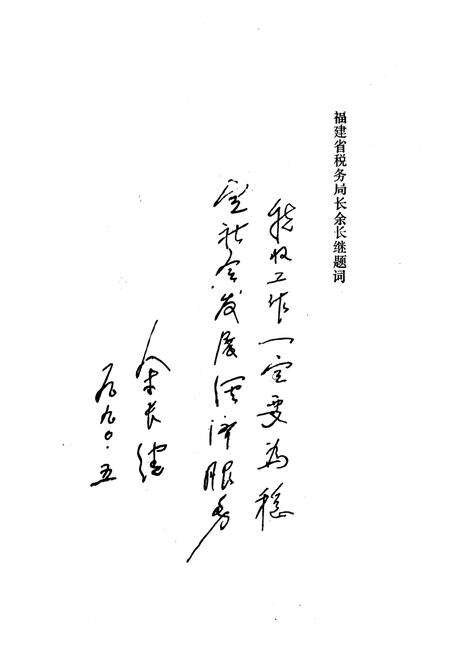 福建省税务局长余长继题词
税收工作一定要为稳
定社会发展经济服务
余长继
一九九〇·五